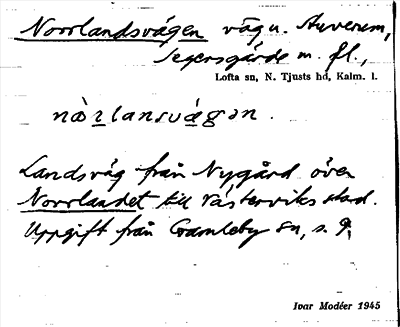 Norrlandsvägen väg u. Auverum,
Segersgärde m. fl.,
Lofta sn, N. Tjusts hd, Kalm. l.
nὰrlansvágən.
Landsväg från Nygård över
Norrlandet till Västerviks stad.
Uppgift från Gamleby sn, s. 9,
Ivar Modéer 1945